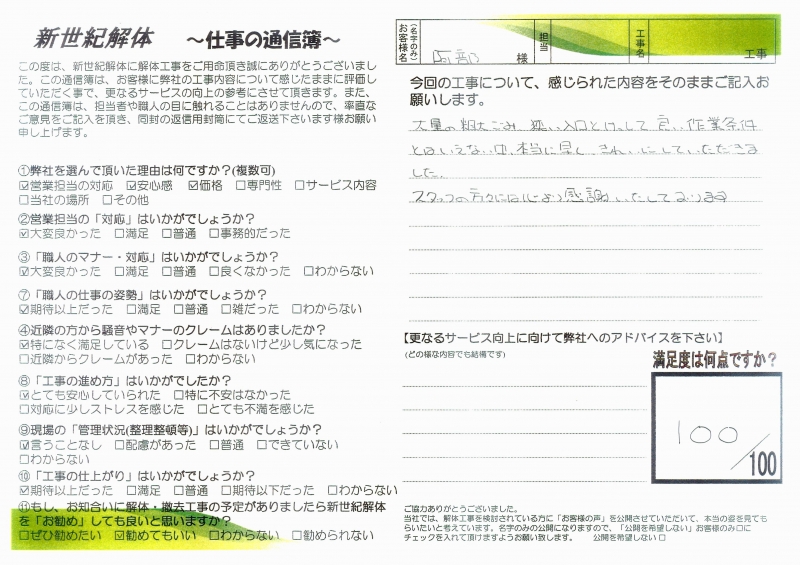 新世紀解体　～仕事の通信簿～
この度は、新世紀解体に解体工事をご用命頂き誠にありがとうございまし
た。この通信簿は、お客様に弊社の工事内容について感じたままに評価し
ていただく事で、更なるサービスの向上の参考にさせて頂きます。また、
この通信簿は、担当者や職人の目に触れることはありませんので、率直な
ご意見をご記入を頂き、同封の返信用封筒にてご返送下さいます様お願い
申し上げます。
①弊社を選んで頂いた理由は何ですか？(複数可)
☑営業担当の対応　☑安心感　☑価格　□専門性　□サービス内容
□当社の場所　□その他
②営業担当の「対応」はいかがでしょうか？
☑大変良かった　□満足　□普通　□事務的だった
③「職人のマナー・対応」はいかがでしょうか？
☑大変良かった　□満足　□普通　□良くなかった　□わからない
⑦「職人の仕事の姿勢」はいかがでしょうか？
☑期待以上だった　□満足　□普通　□雑だった　□わからない
④近隣の方から騒音やマナーのクレームはありましたか？
☑特になく満足している　□クレームはないけど少し気になった
□近隣からクレームがあった　□わからない
⑧「工事の進め方」はいかがでしたか？
☑とても安心していられた　□特に不安はなかった
□対応に少しストレスを感じた　□とても不満を感じた
⑨現場の「管理状況(整理整頓等)」はいかがでしょうか？
☑言うことなし　□配慮があった　□普通　□できていない
□わからない
⑩「工事の仕上がり」はいかがでしょうか？
☑期待以上だった　□満足　□普通　□期待以下だった　□わからない
⑪もし、お知合いに解体・撤去工事の予定がありましたら新世紀解体
を「お勧め」しても良いと思いますか？
□ぜひ勧めたい　☑勧めてもいい　□わからない　□勧められない
お客様名
(名字のみ)
様
担当
工事名
工事
今回の工事について、感じられた内容をそのままご記入お
願いします。
大量の粗大ごみ 狭い入口と、けして良い作業条件
とはいえない中、本当に早く きれいにしていただきま
した。
スタッフの方々には心より感謝いたしております
【更なるサービス向上に向けて弊社へのアドバイスを下さい】
(どの様な内容でも結構です)
満足度は何点ですか？
100/100
ご協力ありがとうございました。
当社では、解体工事を検討されている方に「お客様の声」を公開させていただいて、本当の姿を見ても
らいたいと考えています。名字のみの公開になりますので、「公開を希望しない」お客様のみ□に
チェックを入れて頂けますようお願い致します。　公開を希望しない □